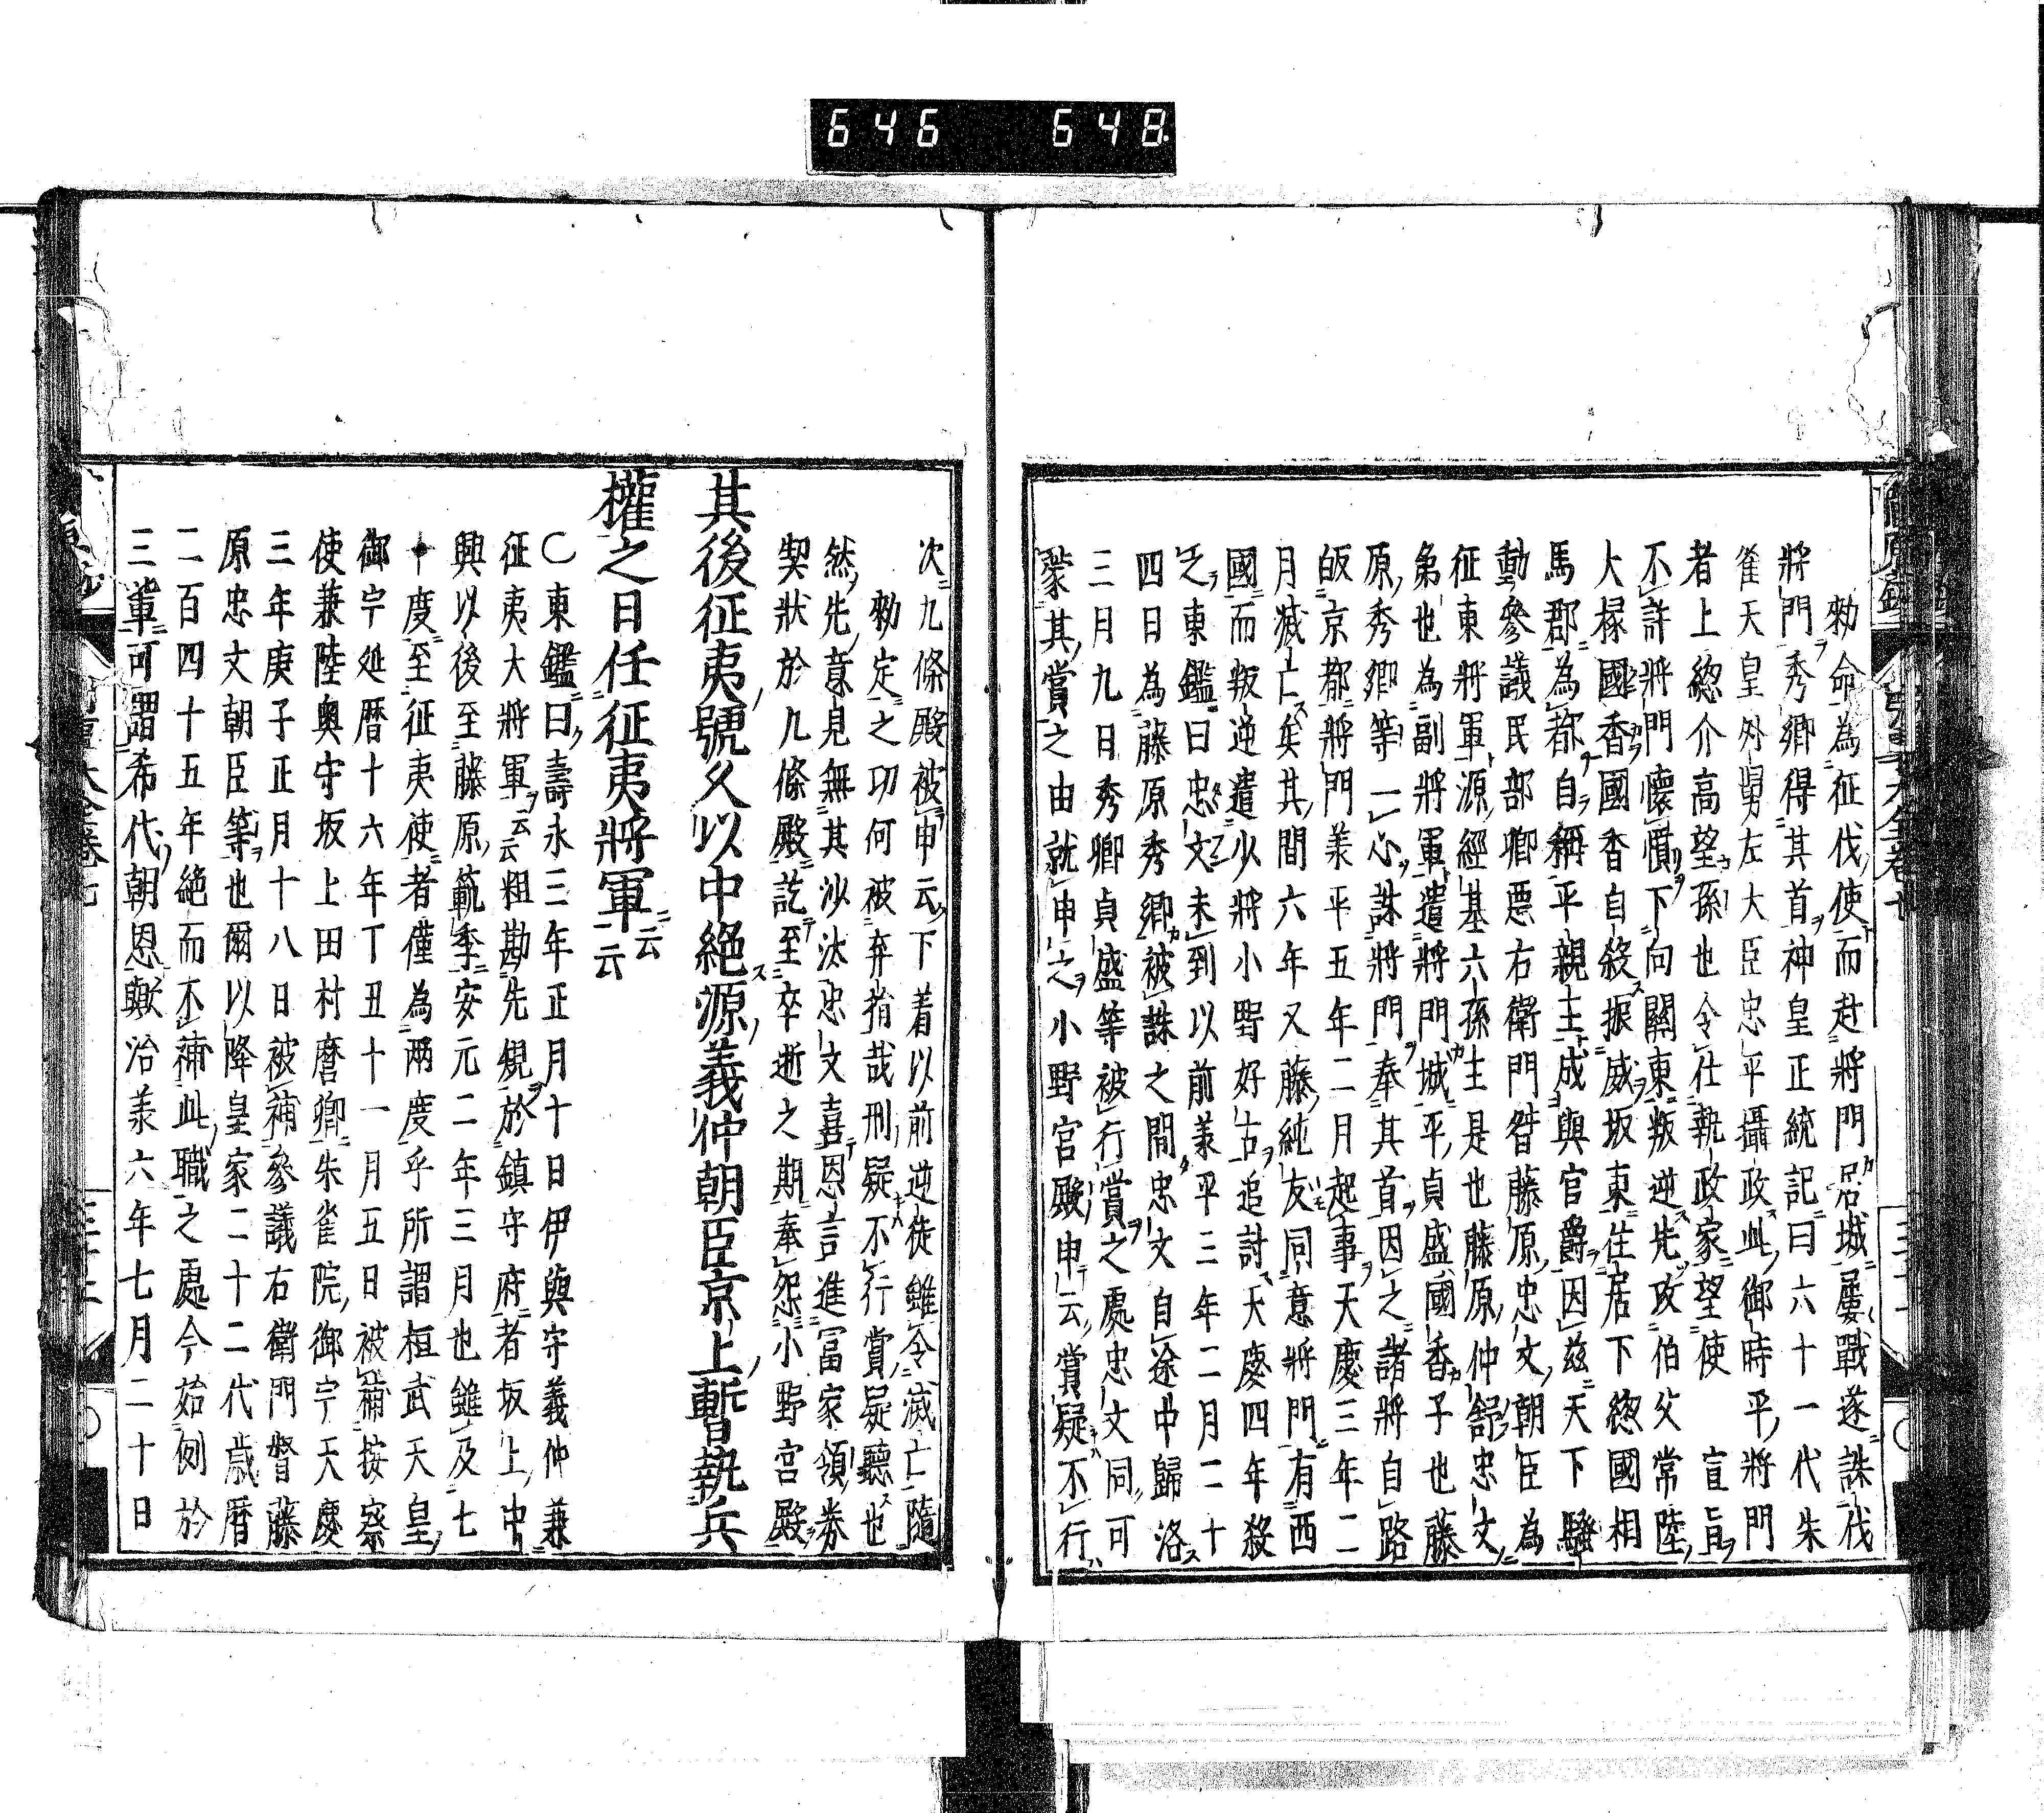 646 648
勅命為征伐使而赴將門居城屢戰遂誅伐
將門秀卿得其首神皇正統記曰六十一代朱
雀天皇外舅左大臣忠平攝政此御時平將門
者上總介高望孫也令仕執政家望使宣旨
不許將門懷憤下向關東叛逆先攻伯父常陸
大掾國香國香自殺振威坂東住居下總國相
馬郡為都自稱平親王成與官爵因茲天下騷
動參議民部卿悪右衛門督藤原忠文朝臣為
征東將軍源經基六孫王是也藤原仲舒忠文
弟也為副將軍遣將門城平貞盛國香子也藤
原秀卿等一心誅將門奉其首因之諸將自路
皈京都將門羕平五年二月起事天慶三年二
月滅亡矣其間六年又藤純友同意將門有西
國而叛逆遣少將小野好古追討天慶四年殺
之東鑑曰忠文未到以前羕平三年二月二十
四日為藤原秀卿被誅之間忠文自途中歸洛
三月九日秀卿貞盛等被行賞之處忠文同可
蒙其賞之由就申之小野宮殿申云賞疑不行
次九條殿被申云下着以前逆徒雖令滅亡隨
勅定之功何被弃捐哉刑疑不行賞疑聽也
然先意見無其沙汰忠文喜恩言進冨家領券
契狀於九條殿訖至卒逝之期奉怨小野宮殿
其後征夷號久以中絕源義仲朝臣京上暫執兵
權之日任征夷將軍云云
〇東鑑曰壽永三年正月十日伊與守義仲兼
征夷大將軍云云粗勘先規於鎮守府者坂上中
興以後至藤原範季安元二年三月也雖及七
十度至征夷使者僅為兩度乎所謂桓武天皇
御宇延暦十六年丁丑十一月五日被補按察
使兼陸奥守坂上田村麿卿朱雀院御宇天慶
三年庚子正月十八日被補參議右衛門督藤
原忠文朝臣等也爾以降皇家二十二代歳暦
二百四十五年絶而不補此職之處今始例於
三輩可謂希代朝恩歟治羕六年七月二十日